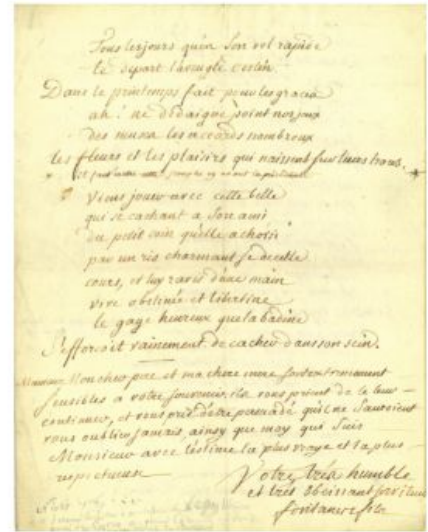 Tous les jours qu'en son vol rapide
le départ l'aveugle destin
Dans le printemps fait pour les graces
ah! ne dedaigne point nos jeux
des muses les accords nombreux
les fleurs et les plaisirs qui naissent sur leurs traces.
viens jouer avec cette belle
qui se cachant a son ami
du petit coin qu'elle a choisi
par un ris charmant se decelle
cours, et luy ravis d'une main
vive obstinée et libertine
le gage heureux que la badine
S'efforçoit vainement de cacher dans son sein.
Monsieur Mon cher pere et ma chere mere sont extremement
sensibles a votre souvenir, ils vous prient de le leur
continuer, et vous prie d'être persuadé qu'il ne sauroient
vous oublier jamais, ainsy que moy qui suis
Monsieur avec l'estime la plus vraye et la plus
respectueuse
Votre très humble
et très obeissant serviteur
fontanes fils